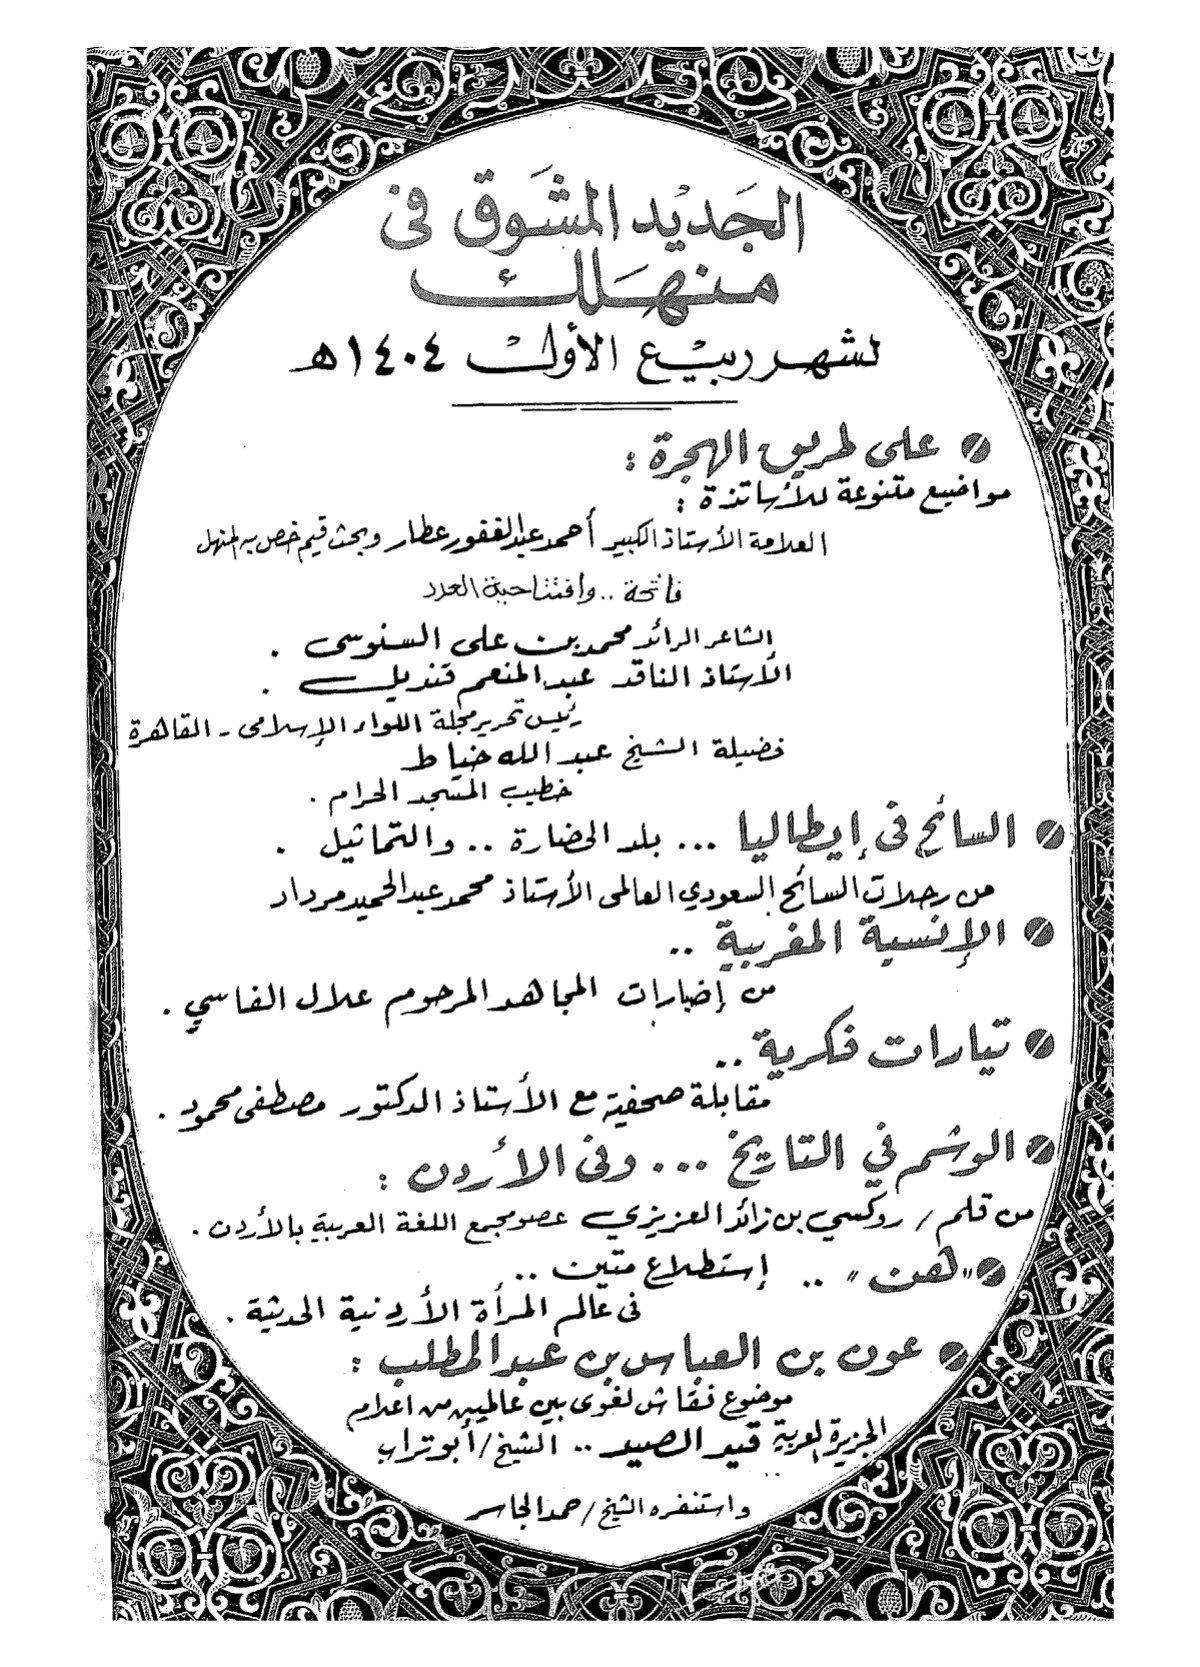 الجديد المشوق فى
منهلك
لشهر ربيع الأول ١٤٠٤هـ
على طريق الهجرة :
مواضيع متنوعة للأساتذة :
العلامة الأستاذ الكبير أحمد عبدالغفور عطار وبحث قيم خص به المنهل
فاتحة .. وافتتاحية العدد
الشاعر الرائد محمد بن على السنوسى .
الأستاذ الناقد عبدالمنعم قنديل .
رئيس تحرير مجلة اللواء الإسلامى - القاهرة
فضيلة الشيخ عبد الله خياط
خطيب المسجد الحرام .
السائح فى إيطاليا ... بلد الحضارة .. والتماثيل .
من رحلات السائح السعودي العالمى الأستاذ محمد عبدالحميد مرداد
الإنسية المغربية ..
من إضبارات المجاهد المرحوم علال الفاسي .
تيارات فكرية ..
مقابلة صحفية مع الأستاذ الدكتور مصطفى محمود .
الوشم في التاريخ ... وفى الأردن :
من قلم / روكسي بن زائد العزيزي عضو مجمع اللغة العربية بالأردن .
"هن" .. إستطلاع متين ..
فى عالم المرأة الأردنية الحديثة .
عون بن العباس بن عبد المطلب :
موضوع نقاش لغوى بين عالمين من اعلام
الجزيرة العربية قيد الصيد .. الشيخ / أبو تراب
واستنفره الشيخ / حمد الجاسر